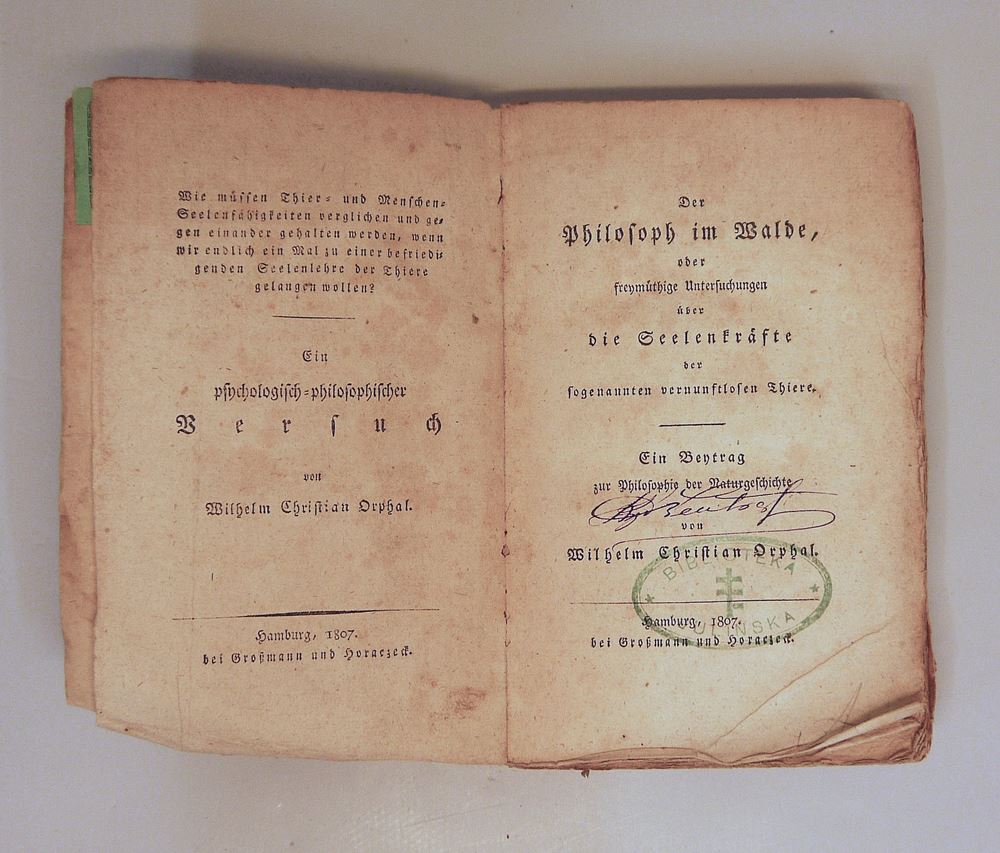 Wie müssen Thier- und Menschen-
Seelenfähigkeiten verglichen und ge-
gen einander gehalten werden, wenn
wir endlich ein Mal zu einer befriedi-
genden Seelenlehre der Thiere
gelangen wollen?
Ein
psychologisch-philosophischer
Versuch
von
Wilhelm Christian Orphal.
Hamburg, 1807.
bei Großmann und Horaczeck.
Der
Philosoph im Walde,
oder
freymüthige Untersuchungen
über
die Seelenkräfte
der
sogenannten vernunftlosen Thiere.
Ein Beytrag
zur Philosophie der Naturgeschichte
von
Wilhelm Christian Orphal.
BIBLIOTEKA
Hamburg, 1807.
bei Großmann und Horaczeck.